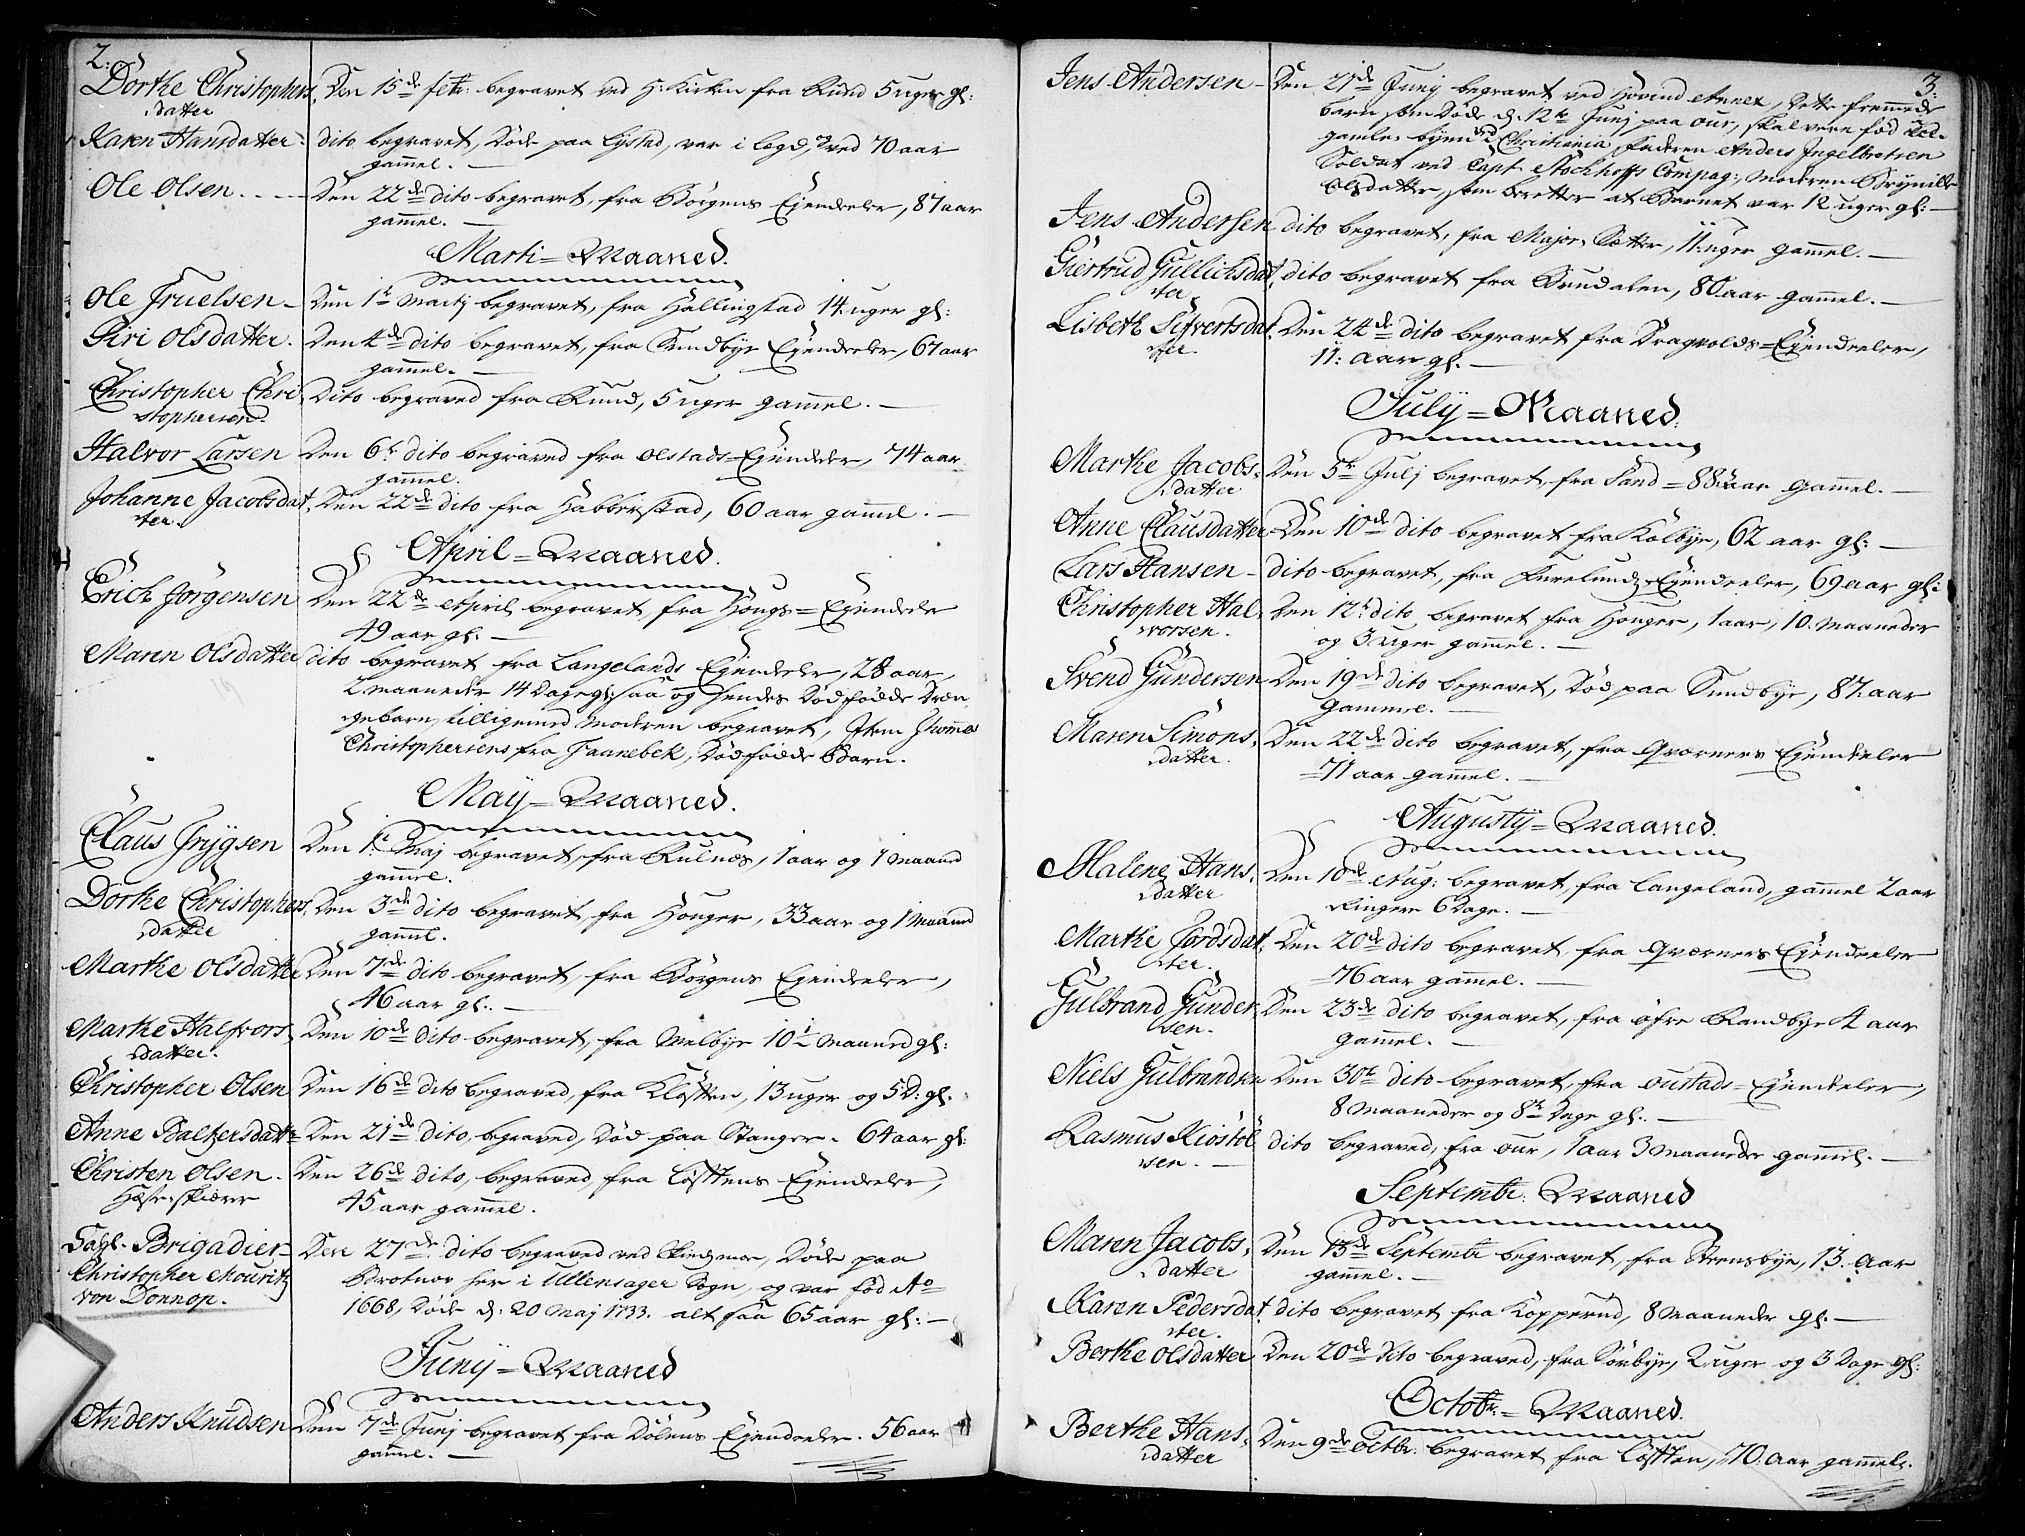 2.
Dorthe Christophers, Den 15de febr: begravet ved H: Kirken fra Rund 5 uger gl:
datter
Karen Hansdatter. dito begravet, Døde paa Lystad, var i Legd, ved 70 aar
gammel. —
Ole Olsen. - - - Den 22de dito begravet, fra Børgens Ejendeeler, 87 aar
gammel. —
Marti = Maaned.
Ole Truelsen — Den 1te Martij begravet, fra Hallingstad 14. uger gl:
Siri Olsdatter. Den 4de dito begravet, fra Sundbye Ejendeeler, 67 aar
gammel. —
Christopher Chri, Dito begraved fra Rund, 5 uger gammel. —
stophersen.
Halvor Larsen Den 6te dito begraved fra Olstads = Ejendeeler, 74 aar
gammel.
Johanne Jacobsdat, Den 22de dito fra Habberstad, 60 aar gammel. —
ter.
April = Maaned.
Erich Jørgensen Den 22de April begravet, fra Høugs = Ejendeeler
49 aar gl: —
Maren Olsdatter dito begravet fra Langelands Ejendeeler, 28 aar,
2 maaneder 14 Dage gl: saa og hendes Dødfødde Dren,
gebarn, tilligemed Moderen begravet, Item Thommes
Christophersens fra Jaanebek, Dødfødde Barn.
May = Maaned.
Claus Trygsen Den 1te Maj begravet, fra Rulnæs, 1 aar og 1 Maaned
gammel.
Dorthe Christophers, Den 3de dito begravet, fra Høuger, 33 aar og 1 Maaned
datter gammel.
Marthe Olsdatter Den 7de dito begravet, fra Børgens Ejendeeler,
46 aar gl. —
Marthe Halfvors, Den 10de dito begravet, fra Melbye 10½ Maaned gl:
datter.
Christopher Olsen Den 16de dito begraved, fra Kløften, 13 uger og 5 D: gl.
Anne Baltzersdatter Den 21de dito, begraved, Død paa Stanger. 64 aar gl:
Christen Olsen. Den 26de dito, begraved, fra Løfttens Ejendeeler,
Hesteskiærer 45 aar gammel.
Sahl. Brigadier Den 27de dito begraved ved Kiedsmoe, Døde paa
Christopher Mouritz Brotnov her i Ullensager Sogn, og var fød Ao
von Donnop. 1668, Døde d: 20 Maj 1733. alt saa 65 aar gl: —
Junij = Maaned
Anders Knudsen Den 7de Junj begravet fra Dølens Ejendeeler. 56 aar
gammel. —
3.
Jens Andersen — Den 21de Junj begravet ved Hovind Annex, Dette fremmede
barn som Døde d. 12te Junj paa Our, skal vere fød ved
gamle byen ved Christiania, Faderen Anders Ingelbretsen
Soldat ved Capt. Stockhoffs Compag:, Moderen Brynille
Olsdatter, som beretter at Barnet var 12 uger gl: —
Jens Andersen dito begravet, fra Major-Sætter, 11: uger gammel. —
Giertrud Gullichsdat, dito begravet fra Brudalen, 80 aar gammel. —
ter
Lisbeth Sifvertsdat, Den 24de dito begravet fra Dragvolds = Ejendeeler,
ter. 11: aar gl. —
July = Maaned.
Marthe Jacobs, Den 5te Julj begravet, fra Sand = 88 aar gammel. —
datter
Anne Clausdatter Den 10de dito begravet fra Kølbye, 62 aar gl: —
Lars Hansen — dito begravet, fra Furulundz = Ejendeeler, 69 aar gl:
Christopher Hal, Den 12te dito begravet fra Høuger, 1 aar, 10. Maaneder
vorsen. og 3 uger gammel. —
Svend Gundersen Den 19de dito begravet, Død paa Sundbye, 87: aar
gammel. —
Maren Simons, Den 22de dito begravet, fra Qværners Ejendeeler
datter. 71 aar gammel. —
Augustij = Maaned.
Malene Hans, Den 10de Aug: begravet, fra Langeland, gammel 2 aar
datter Ringere 6 Dage. —
Marthe Tordsdat, Den 20de dito begravet fra Qværners Ejendeeler
ter. 76 aar gammel. —
Gulbrand Gunder, Den 23de dito begravet, fra Øfre Randbye 4 aar
sen. gammel. —
Niels Gulbrandsen Den 30te dito begravet, fra Oustads = Ejendeeler,
8 Maaneder og 8te Dage gl. —
Rasmus Kiøstol dito begraved, fra Our, 1 aar 3 Maaneder gammel. —
sen. —
Septembr. Maaned
Maren Jacobs, Den 13de Septembr begravet, fra Steensbye, 13. aar
datter gammel. —
Karen Pedersdat, dito begravet fra Kopperud, 8 Maaneder gl. —
ter.
Berthe Olsdatter Den 20de dito begraved, fra Sørbye, 2 uger og 3 Dage gl:
Octobr. = Maaned.
Berthe Hans, Den 9de Octbr: begravet fra Løftten, 70. aar gammel.
datter